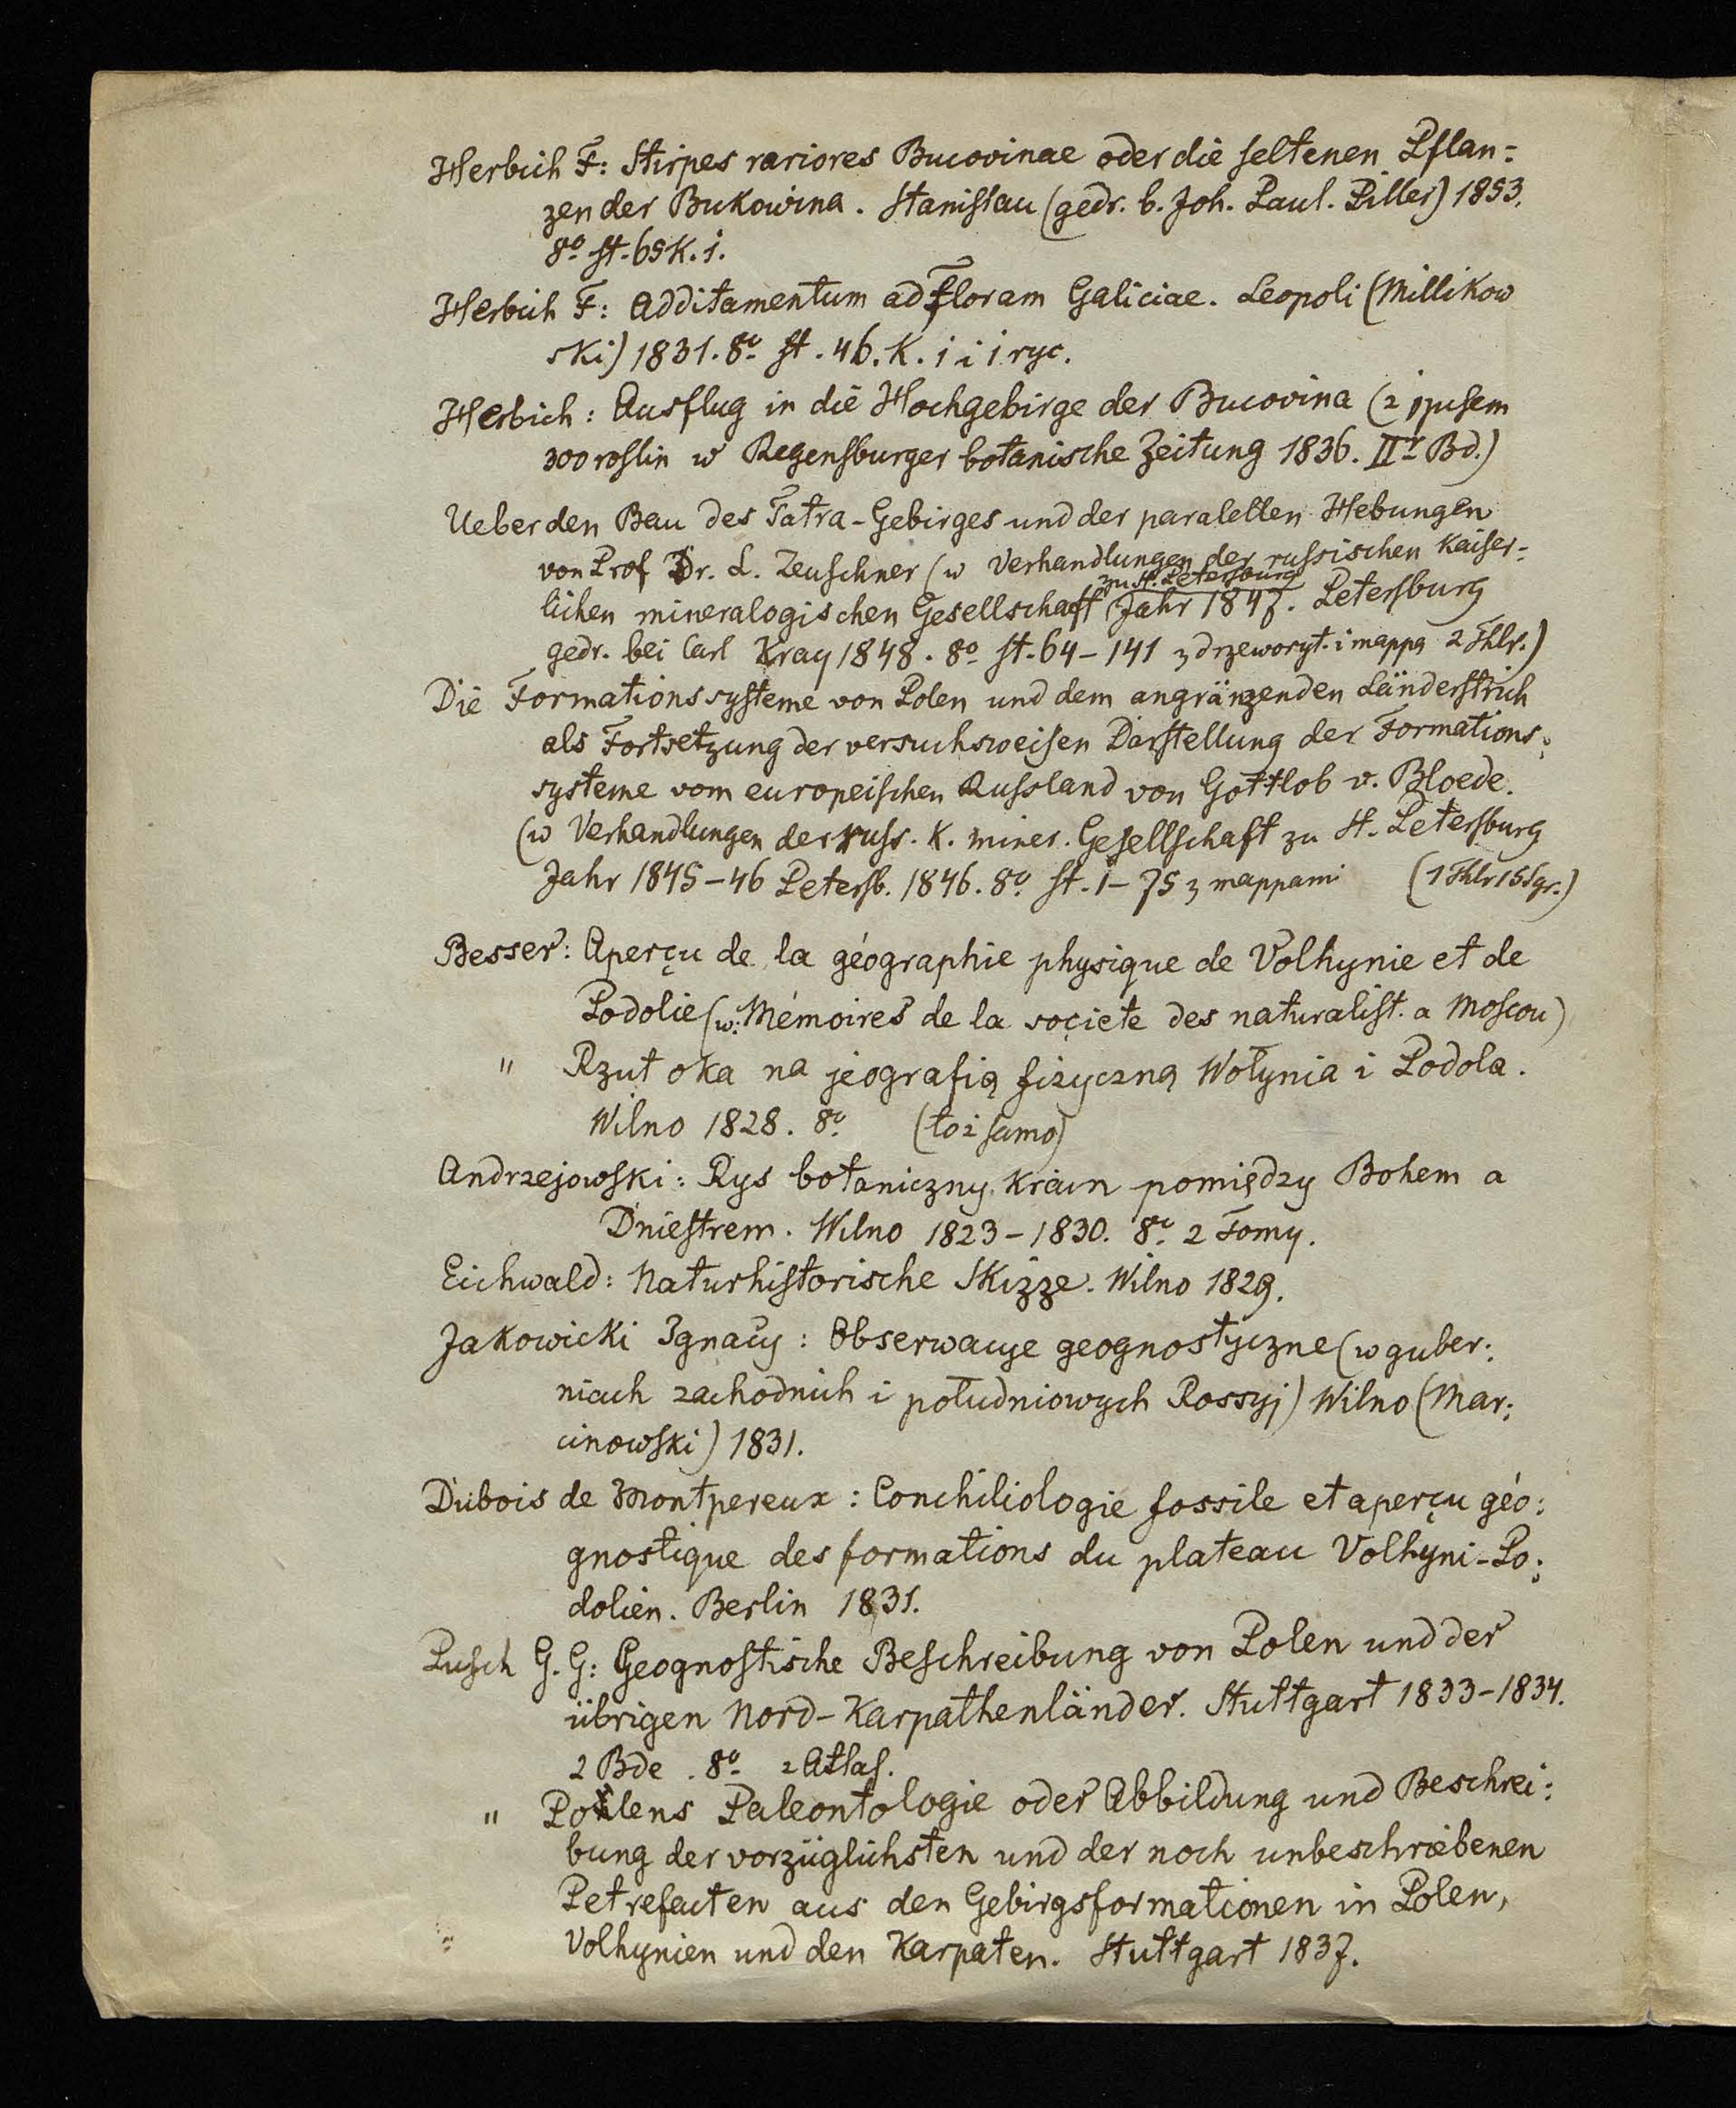 Herbich F: Stirpes rariores Bucovinae oder die seltenen Pflan=
zen der Bukowina. Stanislau (gedr. b. Joh. Paul. Piller) 1853.
8º st. 65 K. 1.
Herbich F: Additamentum ad Floram Galiciae. Leopoli (Millikow
ski) 1831. 8º st. 46. K. 1 i 1 ryc.
Herbich: Ausflug in die Hochgebirge der Bucovina (z spisem
300 roslin w Regensburger botanische Zeitung 1836. IIr Bd.)
Ueber den Bau des Tatra-Gebirges und der paralellen Hebungen
von Prof Dr. L. Zeuschner (w Verhandlungen der russischen Kaiser=
zu St. Petersburg
lichen mineralogischen Gesellschaft Jahr 1847. Petersburg
gedr. bei Carl Kray 1848. 8º st. 64-141 z drzeworyt. i mappą 2 Thlr.)
Die Formationssysteme von Polen und dem angränzenden Länderstrich
als Fortsetzung der versuchsweisen Darstellung der Formations:
systeme vom europeischen Russland von Gottlob v. Bloede.
(w Verhandlungen der russ. K. miner. Gesellschaft zu St. Petersburg
Jahr 1845-46 Petersb. 1846. 8º st. 1-75 z mappami (1 Thlr 15 Sgr.)
Besser: Aperçu de la géographie physique de Volhynie et de
Podolie (w: Mémoires de la sociéte des naturalist. a Moscou)
" Rzut oka na jeografią fizyczną Wołynia i Podola.
Wilno 1828. 8º (toż samo)
Andrzejowski: Rys botaniczny krain pomiędzy Bohem a
Dniestrem. Wilno 1823-1830. 8º 2 Tomy.
Eichwald: Naturhistorische Skizze. Wilno 1829.
Jakowicki Ignacy: Obserwacye geognostyczne (w guber:
niach zachodnich i południowych Rossyj) Wilno (Mar:
cinowski) 1831.
Dubois de Montpereux: Conchiliologie fossile et aperçu géo:
gnostique des formations du plateau Volhyni-Po:
dolien. Berlin 1831.
Pusch G. G: Geognostische Beschreibung von Polen und der
übrigen Nord-Karpathenländer. Stuttgart 1833-1834.
2 Bde. 8º z Atlas.
" Polens Paleontologie oder Abbildung und Beschrei:
bung der vorzüglichsten und der noch unbeschriebenen
Petrefacten aus den Gebirgsformationen in Polen,
Volhynien und den Karpaten. Stuttgart 1837.